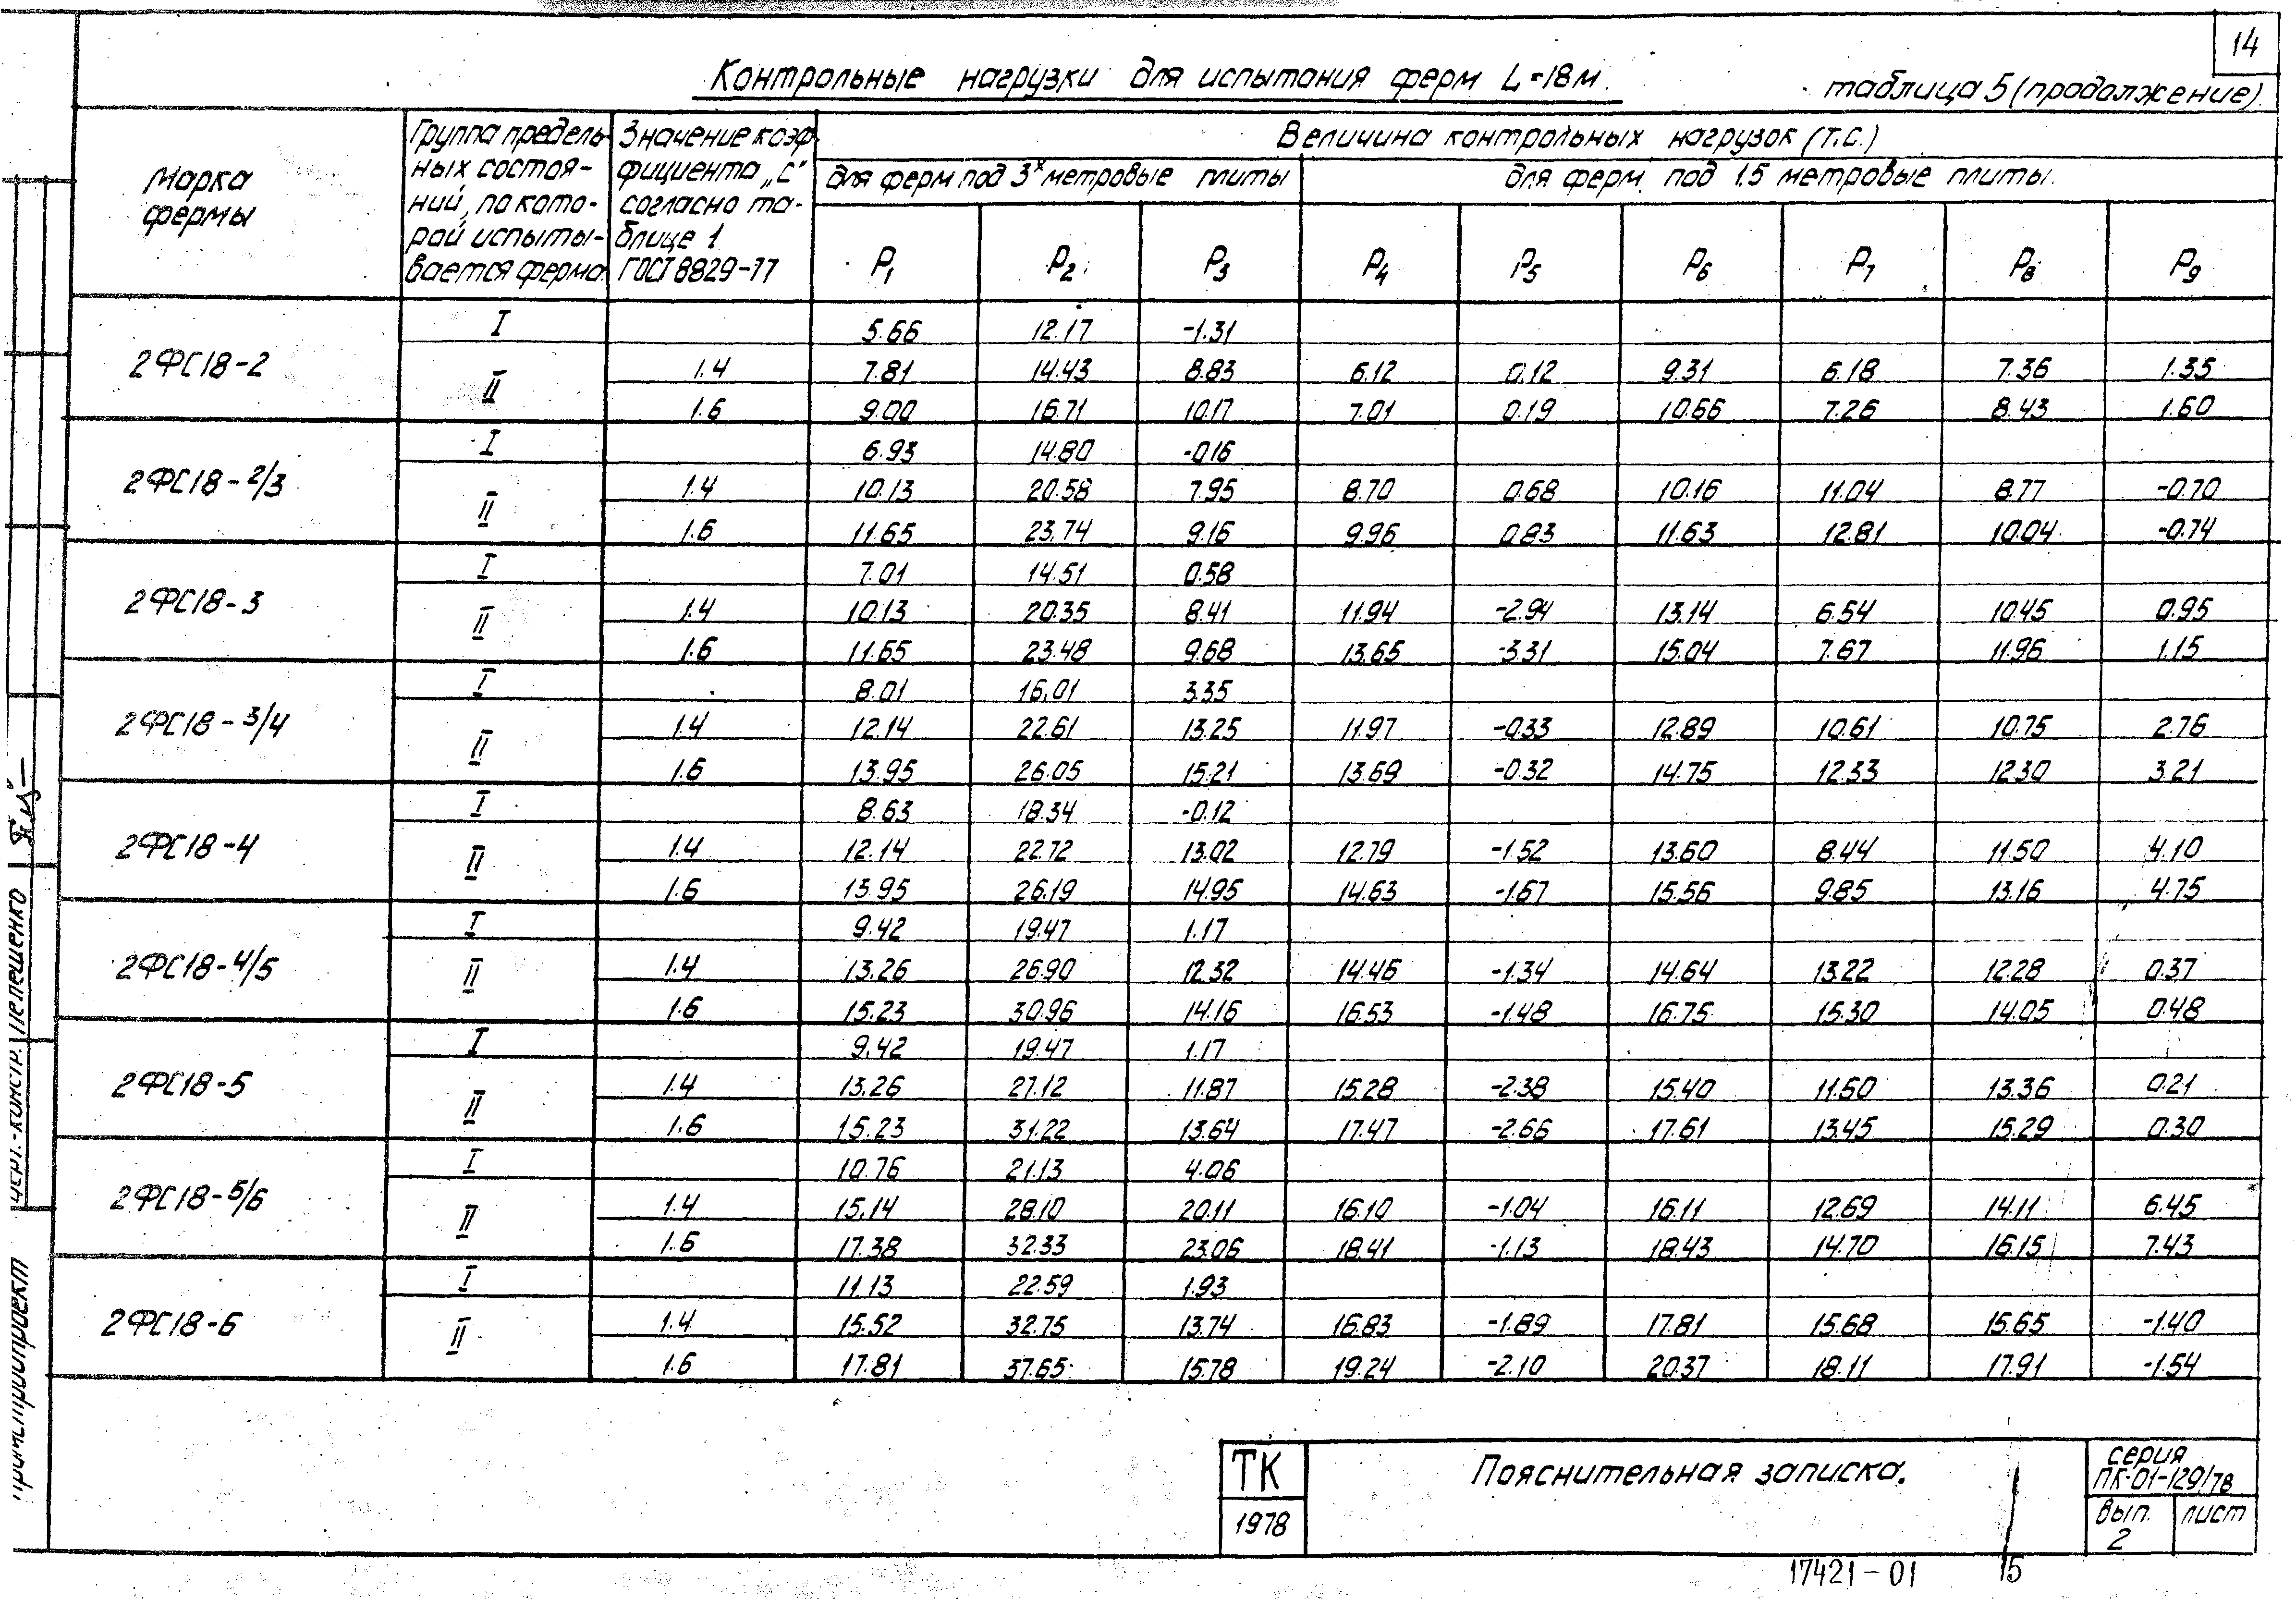 14
Контрольные нагрузки для испытания ферм L=18м.
таблица 5 (продолжение)
Марка фермы
Группа предельных состояний, по которой испытывается ферма
Значение коэффициента „С" согласно таблице 1 ГОСТ 8829-77
Величина контрольных нагрузок (т.с.)
для ферм под 3х метровые плиты
для ферм под 1.5 метровые плиты.
P1 P2 P3 P4 P5 P6 P7 P8 P9
2ФС18-2
I 5.66 12.17 -1.31
II 1.4 7.81 14.43 8.83 6.12 0.12 9.31 6.18 7.36 1.35
1.6 9.00 16.71 10.17 7.01 0.19 10.66 7.26 8.43 1.60
2ФС18-2/3
I 6.93 14.80 -0.16
II 1.4 10.13 20.58 7.95 8.70 0.68 10.16 11.04 8.77 -0.70
1.6 11.65 23.74 9.16 9.96 0.83 11.63 12.81 10.04 -0.74
2ФС18-3
I 7.01 14.51 0.58
II 1.4 10.13 20.35 8.41 11.94 -2.94 13.14 6.54 10.45 0.95
1.6 11.65 23.48 9.68 13.65 -3.31 15.04 7.67 11.96 1.15
2ФС18-3/4
I 8.01 16.01 3.35
II 1.4 12.14 22.61 13.25 11.97 -0.33 12.89 10.61 10.75 2.76
1.6 13.95 26.05 15.21 13.69 -0.32 14.75 12.33 12.30 3.21
2ФС18-4
I 8.63 18.34 -0.12
II 1.4 12.14 22.72 13.02 12.79 -1.52 13.60 8.44 11.50 4.10
1.6 13.95 26.19 14.95 14.63 -1.67 15.56 9.85 13.16 4.75
2ФС18-4/5
I 9.42 19.47 1.17
II 1.4 13.26 26.90 12.32 14.46 -1.34 14.64 13.22 12.28 0.37
1.6 15.23 30.96 14.16 16.53 -1.48 16.75 15.30 14.05 0.48
2ФС18-5
I 9.42 19.47 1.17
II 1.4 13.26 27.12 11.87 15.28 -2.38 15.40 11.60 13.36 0.21
1.6 15.23 31.22 13.64 17.47 -2.66 17.61 13.45 15.29 0.30
2ФС18-5/6
I 10.76 21.13 4.06
II 1.4 15.14 28.10 20.11 16.10 -1.04 16.11 12.69 14.11 6.45
1.6 17.38 32.33 23.06 18.41 -1.13 18.43 14.70 16.15 7.43
2ФС18-6
I 11.13 22.59 1.93
II 1.4 15.52 32.75 13.74 16.83 -1.89 17.81 15.68 15.65 -1.40
1.6 17.81 37.65 15.78 19.24 -2.10 20.37 18.11 17.91 -1.54
ТК
1978
Пояснительная записка.
серия
ПК-01-129/78
вып. лист
2
17421-01 15